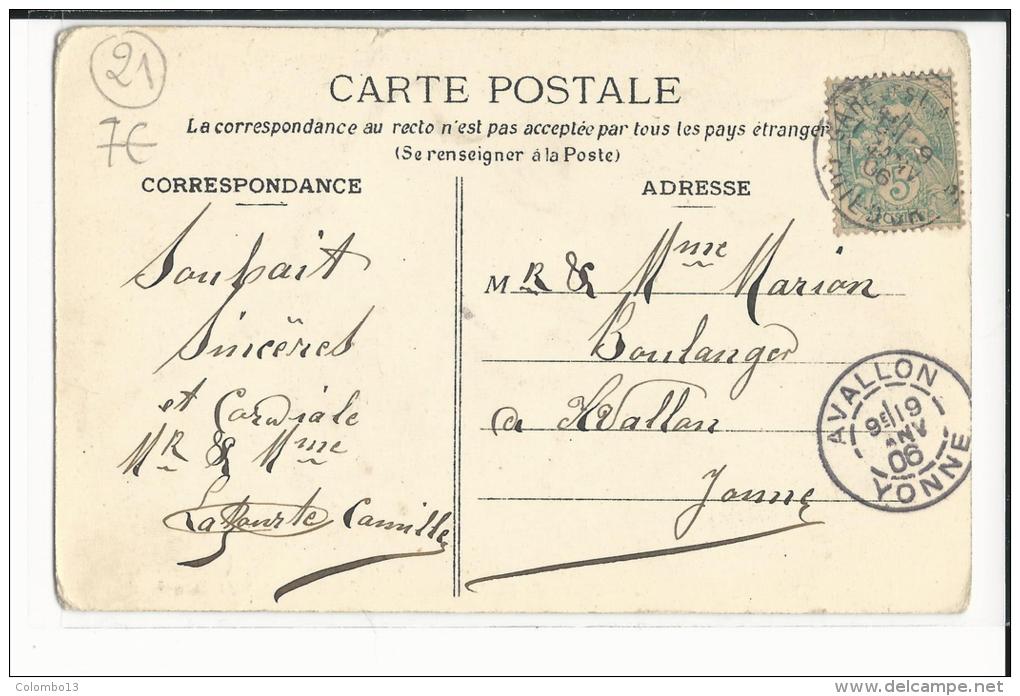 21
7€
CARTE POSTALE
La correspondance au recto n'est pas acceptée par tous les pays étrangers
(Se renseigner à la Poste)
CORRESPONDANCE
ADRESSE
Souhait
Sincères
et Cordiale
MR & Mme
Camille
MR & Mme Marion
Boulanger
a Avallon
Yonne
AVALLON
9E/19
JANV
06
YONNE
Colombo13
www.delcampe.net